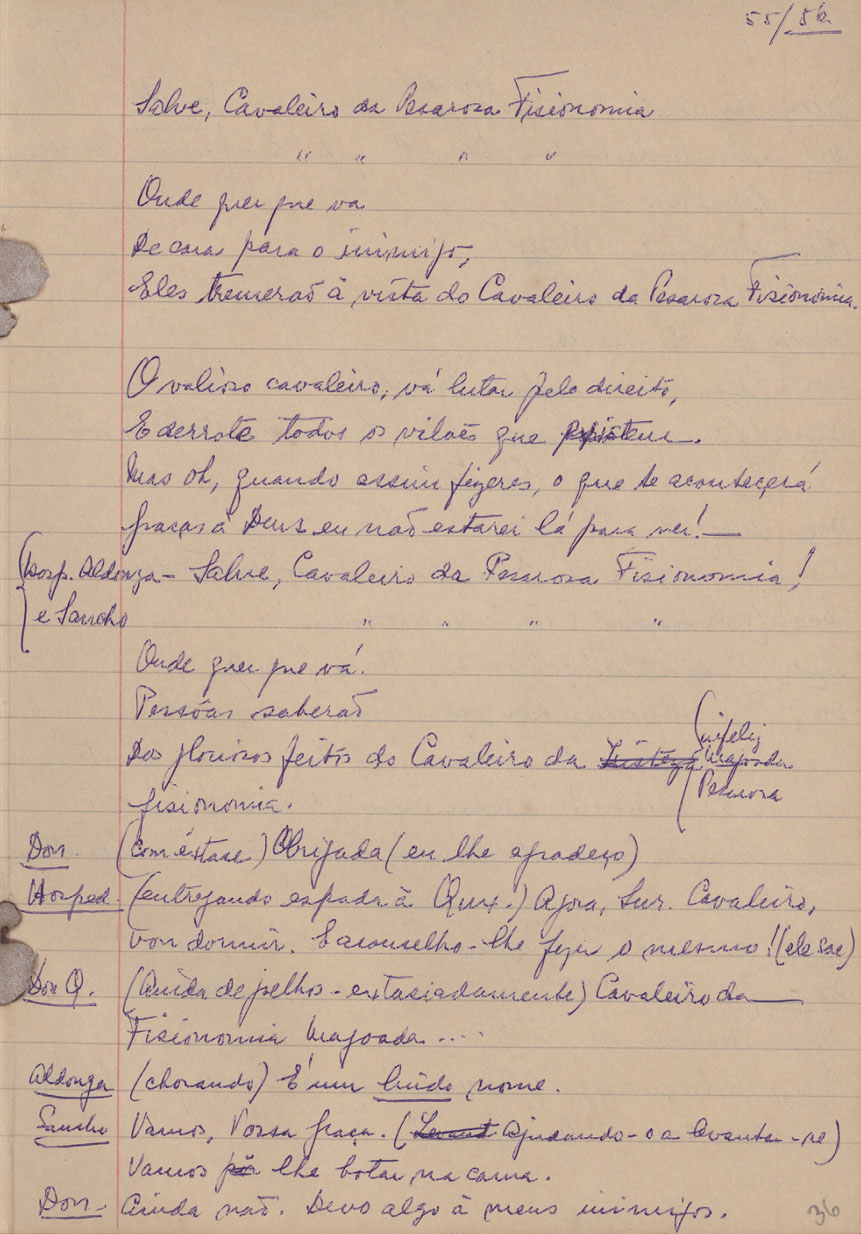 55/56
Salve, Cavaleiro da Pesarosa Fisionomia
" " " "
Onde quer que va
De cara para o inimigo,
Eles tremerão à vista do Cavaleiro da Pesarosa Fisionomia.
O valioso cavaleiro, vá lutar pelo direito,
E derrote todos os vilões que existem.
Mas oh, quando assim fizeres, o que te acontecerá
graças à Deus eu não estarei lá para ver!
Hosp. Aldonza - Salve, Cavaleiro da Pesarosa Fisionomia!
e Sancho " " " "
Onde quer que vá!
Pessôas saberão
Dos gloriosos feitos do Cavaleiro da Tristeza infeliz
Magoada
fisionomia. Pesarosa
Don (com êxtase) Obrigada (eu lhe agradeço)
Hosped. (entregando espada à Quix.) Agora, Snr. Cavaleiro,
vou dormir. E aconselho-lhe fazer o mesmo! (ele sae)
Don Q. (Ainda de joelhos - extasiadamente) Cavaleiro da
Fisionomia Magoada ....
Aldonza (chorando) É um lindo nome.
Sancho Vamos, Vossa graça. (Levant Ajudando-o a levantar-se)
Vamos lhe botar na cama.
Don - Ainda não. Devo algo à meus inimigos.
36